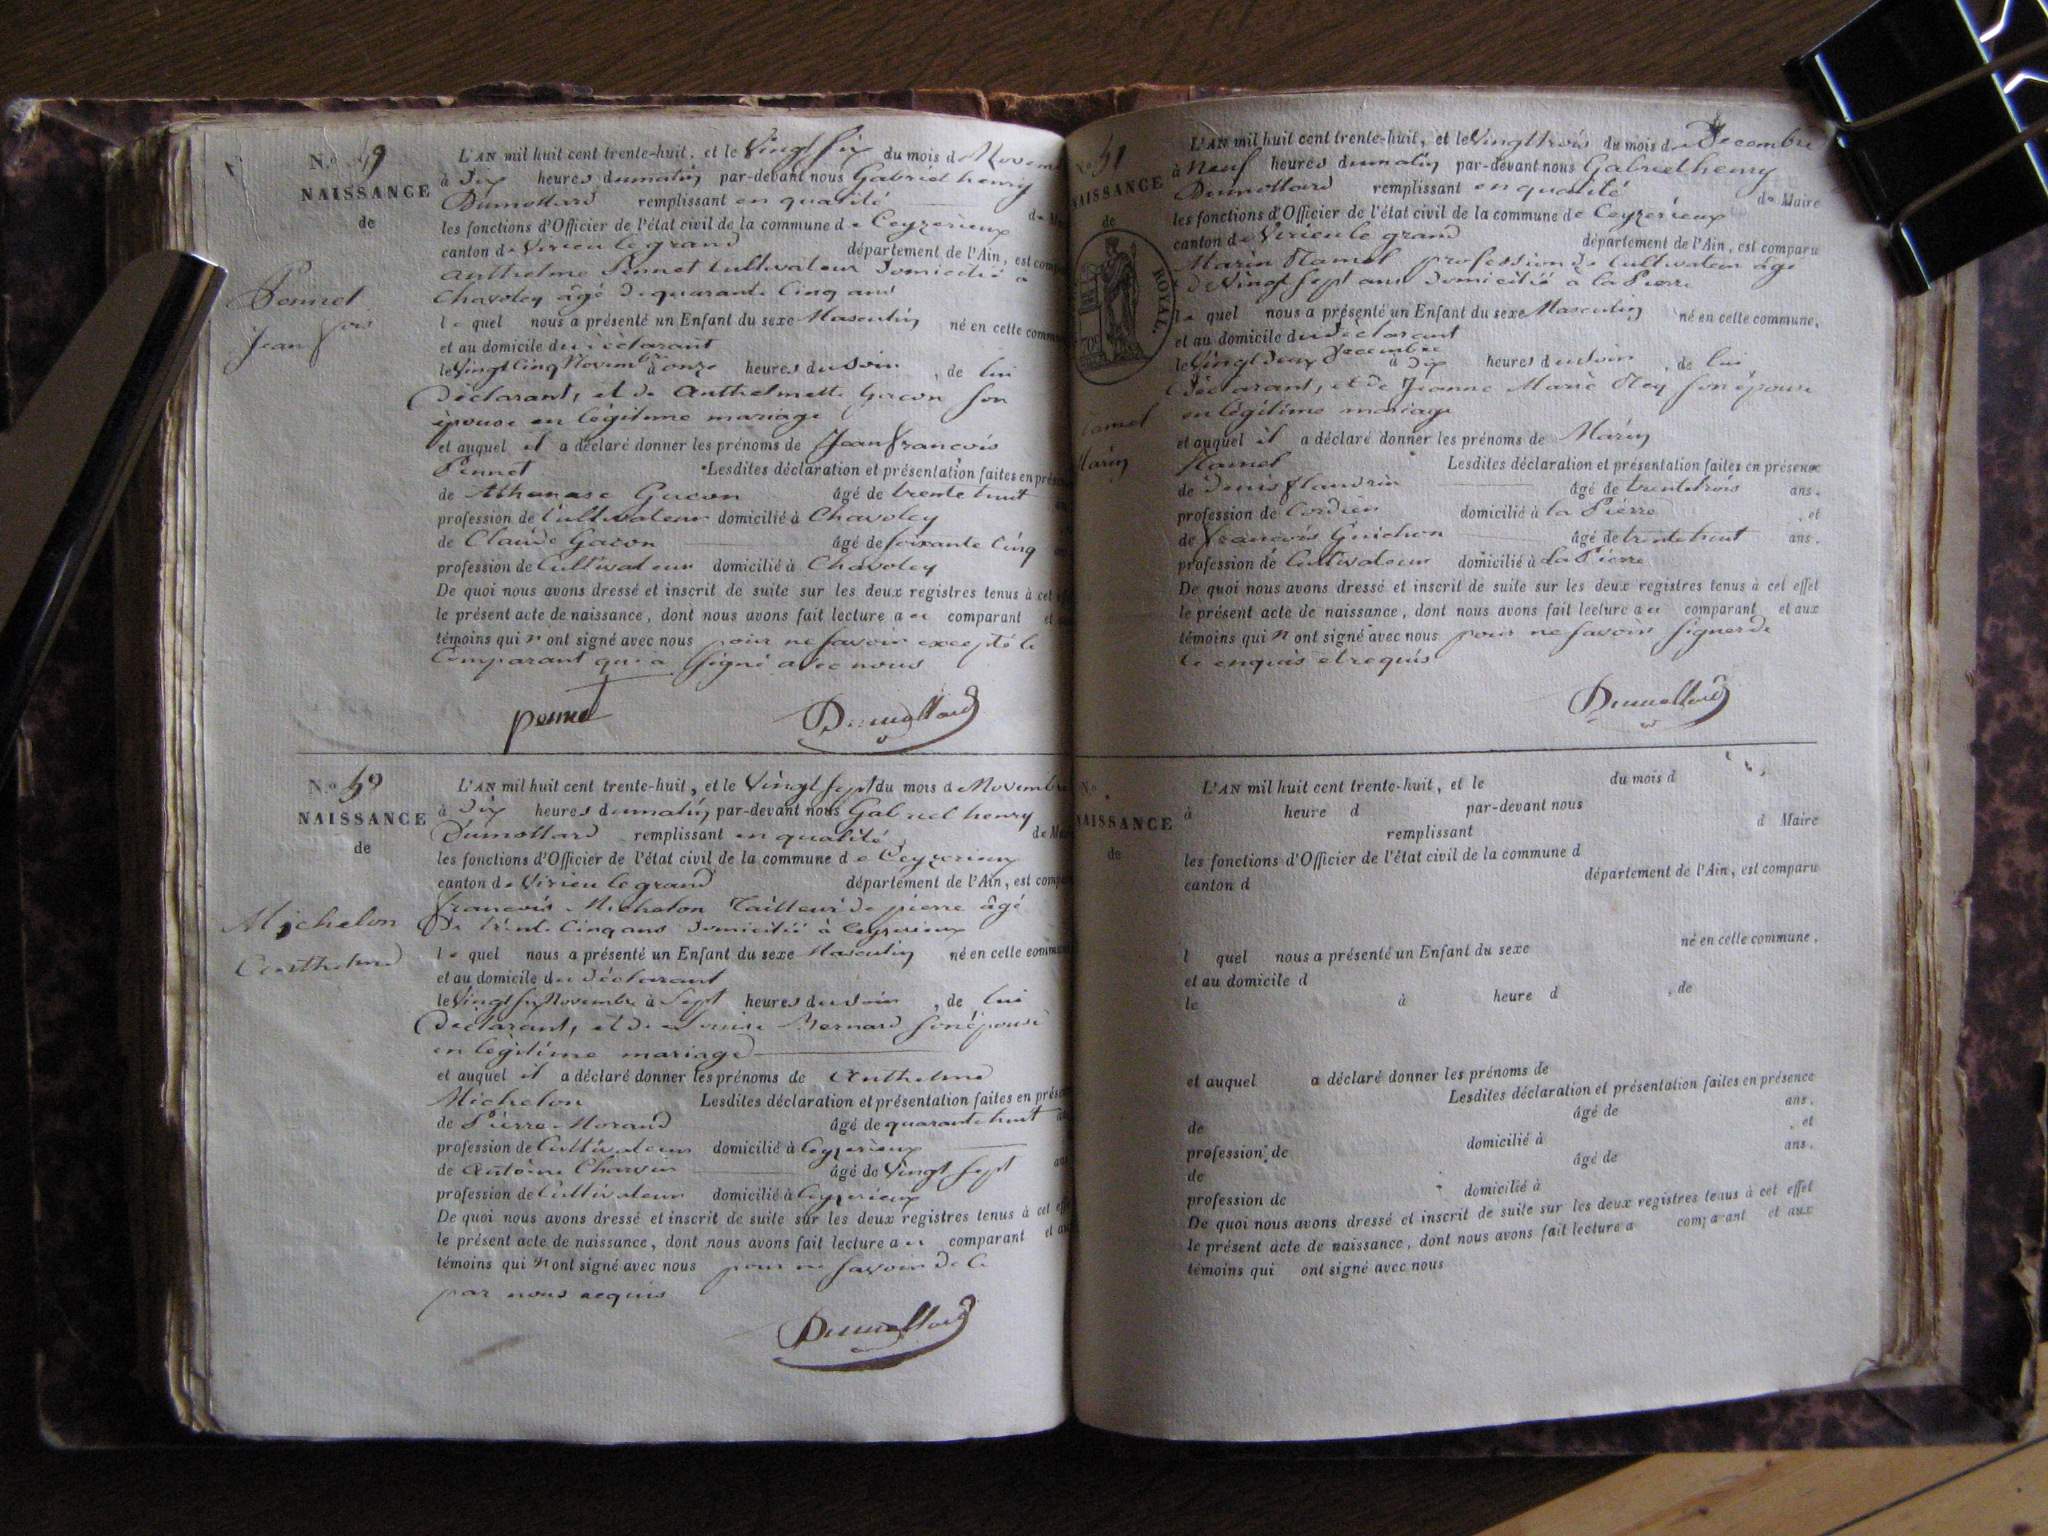 N.o 49
NAISSANCE
de
Pennet
Jean fois
L'AN mil huit cent trente-huit, et le Vingt six du mois de Novem
à dix heures du matin par-devant nous Gabriel henry
Dumollard remplissant en qualité de Ma
les fonctions d'Officier de l'état civil de la commune de Ceyzerieux
canton de Virieu le grand département de l'Ain, est compa
Anthelme Pennet Cultivateur domicilié a
Chavoley âgé de quarante Cinq ans
le quel nous a présenté un Enfant du sexe Masculin né en cette commun
et au domicile du déclarant
le Vingt Cinq Novembre à onze heures du soir, de lui
déclarant, et de Anthelmette Gacon son
épouse en légitime mariage
et auquel il a déclaré donner les prénoms de Jean francois
Pennet Lesdites déclaration et présentation faites en prése
de Athanase Gacon âgé de trente huit
profession de Cultivateur domicilié à Chavoley
de Claude Gacon âgé de soixante Cinq
profession de Cultivateur domicilié à Chavoley
De quoi nous avons dressé et inscrit de suite sur les deux registres tenus à cet effe
le présent acte de naissance, dont nous avons fait lecture au comparant et
témoins qui n'ont signé avec nous pour ne savoir excepté le
Comparant qui a signé avec nous
pennet Dumollard
N.o 50
NAISSANCE
de
Michelon
Anthelme
L'AN mil huit cent trente-huit, et le Vingt sept du mois de Novembre
à dix heures du matin par-devant nous Gabriel henry
Dumollard remplissant en qualité de Mai
les fonctions d'Officier de l'état civil de la commune de Ceyzerieux
canton de Virieu le grand département de l'Ain, est comp
francois Michelon Tailleur de pierre âgé
De trente Cinq ans domicilié à Ceyzerieux
le quel nous a présenté un Enfant du sexe Masculin né en cette commun
et au domicile du déclarant
le Vingt six Novembre à Sept heures du soir, de lui
déclarant, et de Louise Bernard son épouse
en légitime mariage
et auquel il a déclaré donner les prénoms de Anthelme
Michelon Lesdites déclaration et présentation faites en prése
de Pierre Morand âgé de quarante huit an
profession de Cultivateur domicilié à Ceyzerieux
de Antoine Charvin âgé de Vingt sept ans
profession de Cultivateur domicilié à Ceyzerieux
De quoi nous avons dressé et inscrit de suite sur les deux registres tenus à cet effe
le présent acte de naissance, dont nous avons fait lecture au comparant et au
témoins qui n'ont signé avec nous pour ne savoir de ce
par nous requis
Dumollard
N.o 51
NAISSANCE
de
ROYAL.
amel
Marin
L'AN mil huit cent trente-huit, et le Vingt trois du mois de Decembre
à Neuf heures du matin par-devant nous Gabriel henry
Dumollard remplissant en qualité de Maire
les fonctions d'Officier de l'état civil de la commune de Ceyzerieux
canton de Virieu le grand département de l'Ain, est comparu
Marin Hamel profession de Cultivateur âgé
de Vingt sept ans domicilié a la Pierre
le quel nous a présenté un Enfant du sexe Masculin né en cette commune,
et au domicile du déclarant
le Vingt deux Decembre à Dix heures du soir, de lui
déclarant, et de Jeanne Marie Rey son épouse
en légitime mariage
et auquel il a déclaré donner les prénoms de Marin
Hamel Lesdites déclaration et présentation faites en présence
de denis flandrin âgé de trente trois ans.
profession de Cordier domicilié à la Pierre, et
de francois Guichon âgé de trente huit ans.
profession de Cultivateur domicilié à la Pierre
De quoi nous avons dressé et inscrit de suite sur les deux registres tenus à cet effet
le présent acte de naissance, dont nous avons fait lecture au comparant et aux
témoins qui n'ont signé avec nous pour ne savoir signer de
ce enquis et requis
Dumollard
N.o
NAISSANCE
de
L'AN mil huit cent trente-huit, et le du mois d
à heure d par-devant nous
remplissant d Maire
les fonctions d'Officier de l'état civil de la commune d
canton d département de l'Ain, est comparu
l quel nous a présenté un Enfant du sexe né en cette commune,
et au domicile d
le à heure d , de
et auquel a déclaré donner les prénoms de
Lesdites déclaration et présentation faites en présence
de âgé de ans.
profession de domicilié à , et
de âgé de ans.
profession de domicilié à
De quoi nous avons dressé et inscrit de suite sur les deux registres tenus à cet effet
le présent acte de naissance, dont nous avons fait lecture a comparant et aux
témoins qui ont signé avec nous